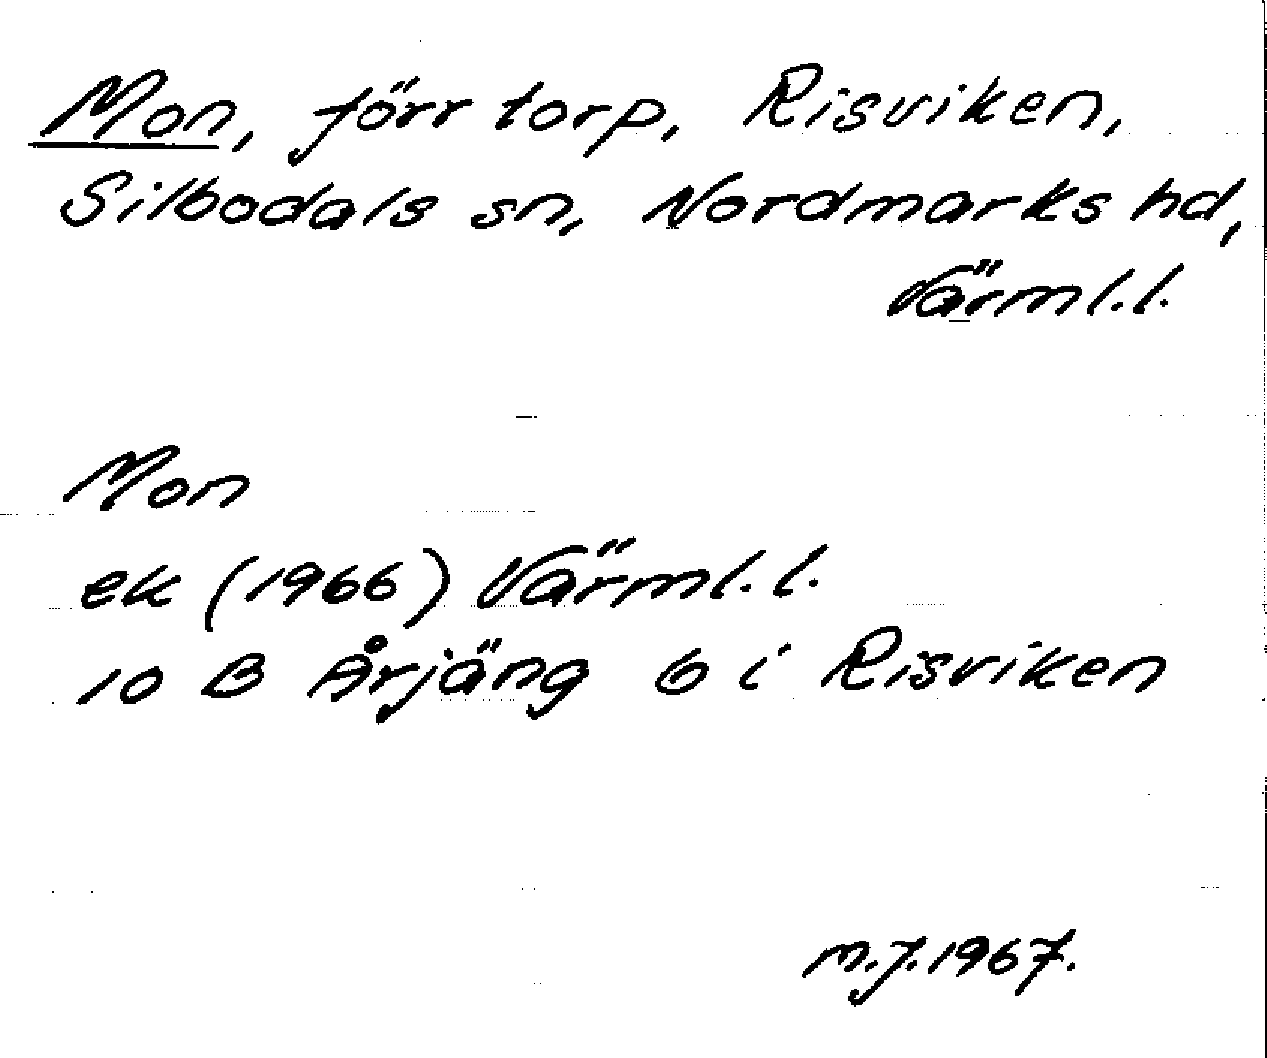 Mon, förr torp, Risviken,
Silbodals sn, Nordmarks hd,
Värml.l.
Mon
ek (1966) Värml.l.
10 B Årjäng 6 i Risviken
M.J.1967.